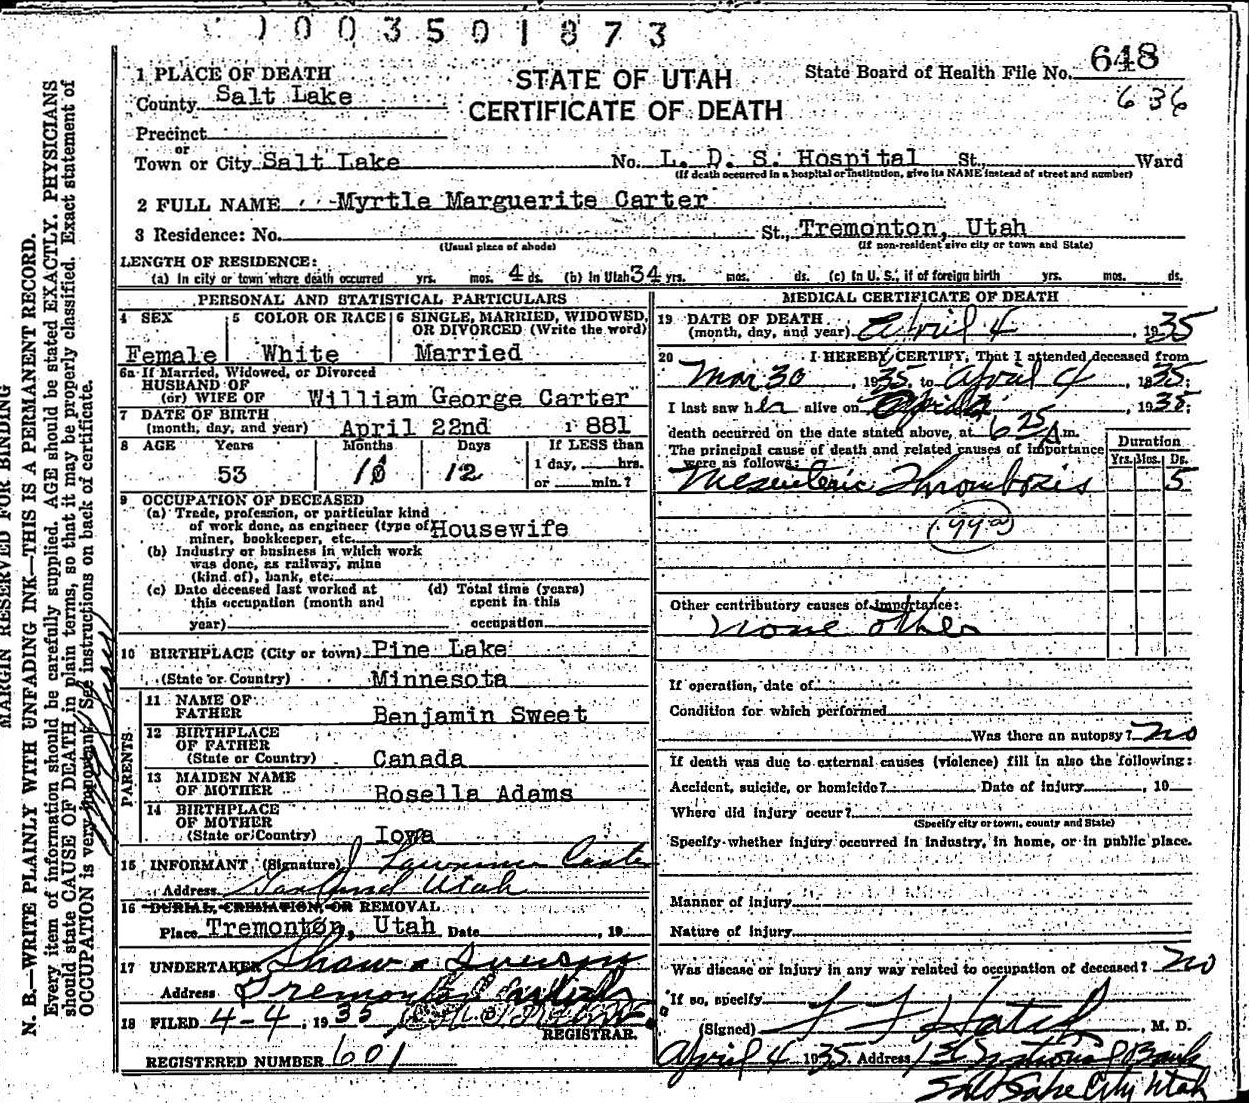 1003501873
648
636
STATE OF UTAH
CERTIFICATE OF DEATH
State Board of Health File No.
1 PLACE OF DEATH
County Salt Lake
Precinct
or
Town or City Salt Lake No. L. D. S. Hospital St., Ward
(If death occurred in a hospital or institution, give its NAME instead of street and number)
2 FULL NAME Myrtle Marguerite Carter
3 Residence: No. St., Tremonton, Utah
(Usual place of abode) (If non-resident give city or town and State)
LENGTH OF RESIDENCE:
(a) In city or town where death occurred yrs. mos. 4 ds. (b) In Utah 34 yrs. mos. ds. (c) In U. S., if of foreign birth yrs. mos. ds.
PERSONAL AND STATISTICAL PARTICULARS
4 SEX 5 COLOR OR RACE 6 SINGLE, MARRIED, WIDOWED, OR DIVORCED (Write the word)
Female White Married
6a If Married, Widowed, or Divorced
HUSBAND OF
(or) WIFE OF William George Carter
7 DATE OF BIRTH
(month, day, and year) April 22nd 1881
8 AGE Years Months Days If LESS than
53 12 1 day, hrs.
or min.?
9 OCCUPATION OF DECEASED
(a) Trade, profession, or particular kind
of work done, as engineer (type of) Housewife
miner, bookkeeper, etc.
(b) Industry or business in which work
was done, as railway, mine
(kind of), bank, etc.
(c) Date deceased last worked at (d) Total time (years)
this occupation (month and spent in this
year) occupation
10 BIRTHPLACE (City or town) Pine Lake
(State or Country) Minnesota
PARENTS
11 NAME OF
FATHER Benjamin Sweet
12 BIRTHPLACE
OF FATHER
(State or Country) Canada
13 MAIDEN NAME
OF MOTHER Rosella Adams
14 BIRTHPLACE
OF MOTHER
(State or Country) Iowa
15 INFORMANT (Signature) Lawrence Carter
Address Garland Utah
16 BURIAL, CREMATION, OR REMOVAL
Place Tremonton, Utah Date , 19
17 UNDERTAKER Shaw & Iverson
Address Tremonton Utah
18 FILED 4-4, 1935
REGISTRAR.
REGISTERED NUMBER 601
MEDICAL CERTIFICATE OF DEATH
19 DATE OF DEATH
(month, day, and year) April 4, 1935
20 I HEREBY CERTIFY, That I attended deceased from
Mar 30, 1935, to April 4, 1935;
I last saw her alive on April, 1935;
death occurred on the date stated above, at 6 25 A m.
The principal cause of death and related causes of importance
were as follows: Duration
Yrs. Mos. Ds.
Mesenteric Thrombosis 5
(99a)
Other contributory causes of importance:
none other
If operation, date of
Condition for which performed
Was there an autopsy? No
If death was due to external causes (violence) fill in also the following:
Accident, suicide, or homicide? Date of injury , 19
Where did injury occur?
(Specify city or town, county and State)
Specify whether injury occurred in industry, in home, or in public place.
Manner of Injury
Nature of Injury
Was disease or injury in any way related to occupation of deceased? No
If so, specify
(Signed) F F Hatch, M. D.
April 4 1935 Address National Bank
Salt Lake City Utah
MARGIN RESERVED FOR BINDING
N. B.—WRITE PLAINLY WITH UNFADING INK—THIS IS A PERMANENT RECORD.
Every item of information should be carefully supplied. AGE should be stated EXACTLY. PHYSICIANS
should state CAUSE OF DEATH in plain terms, so that it may be properly classified. Exact statement of
OCCUPATION is very important. See instructions on back of certificate.